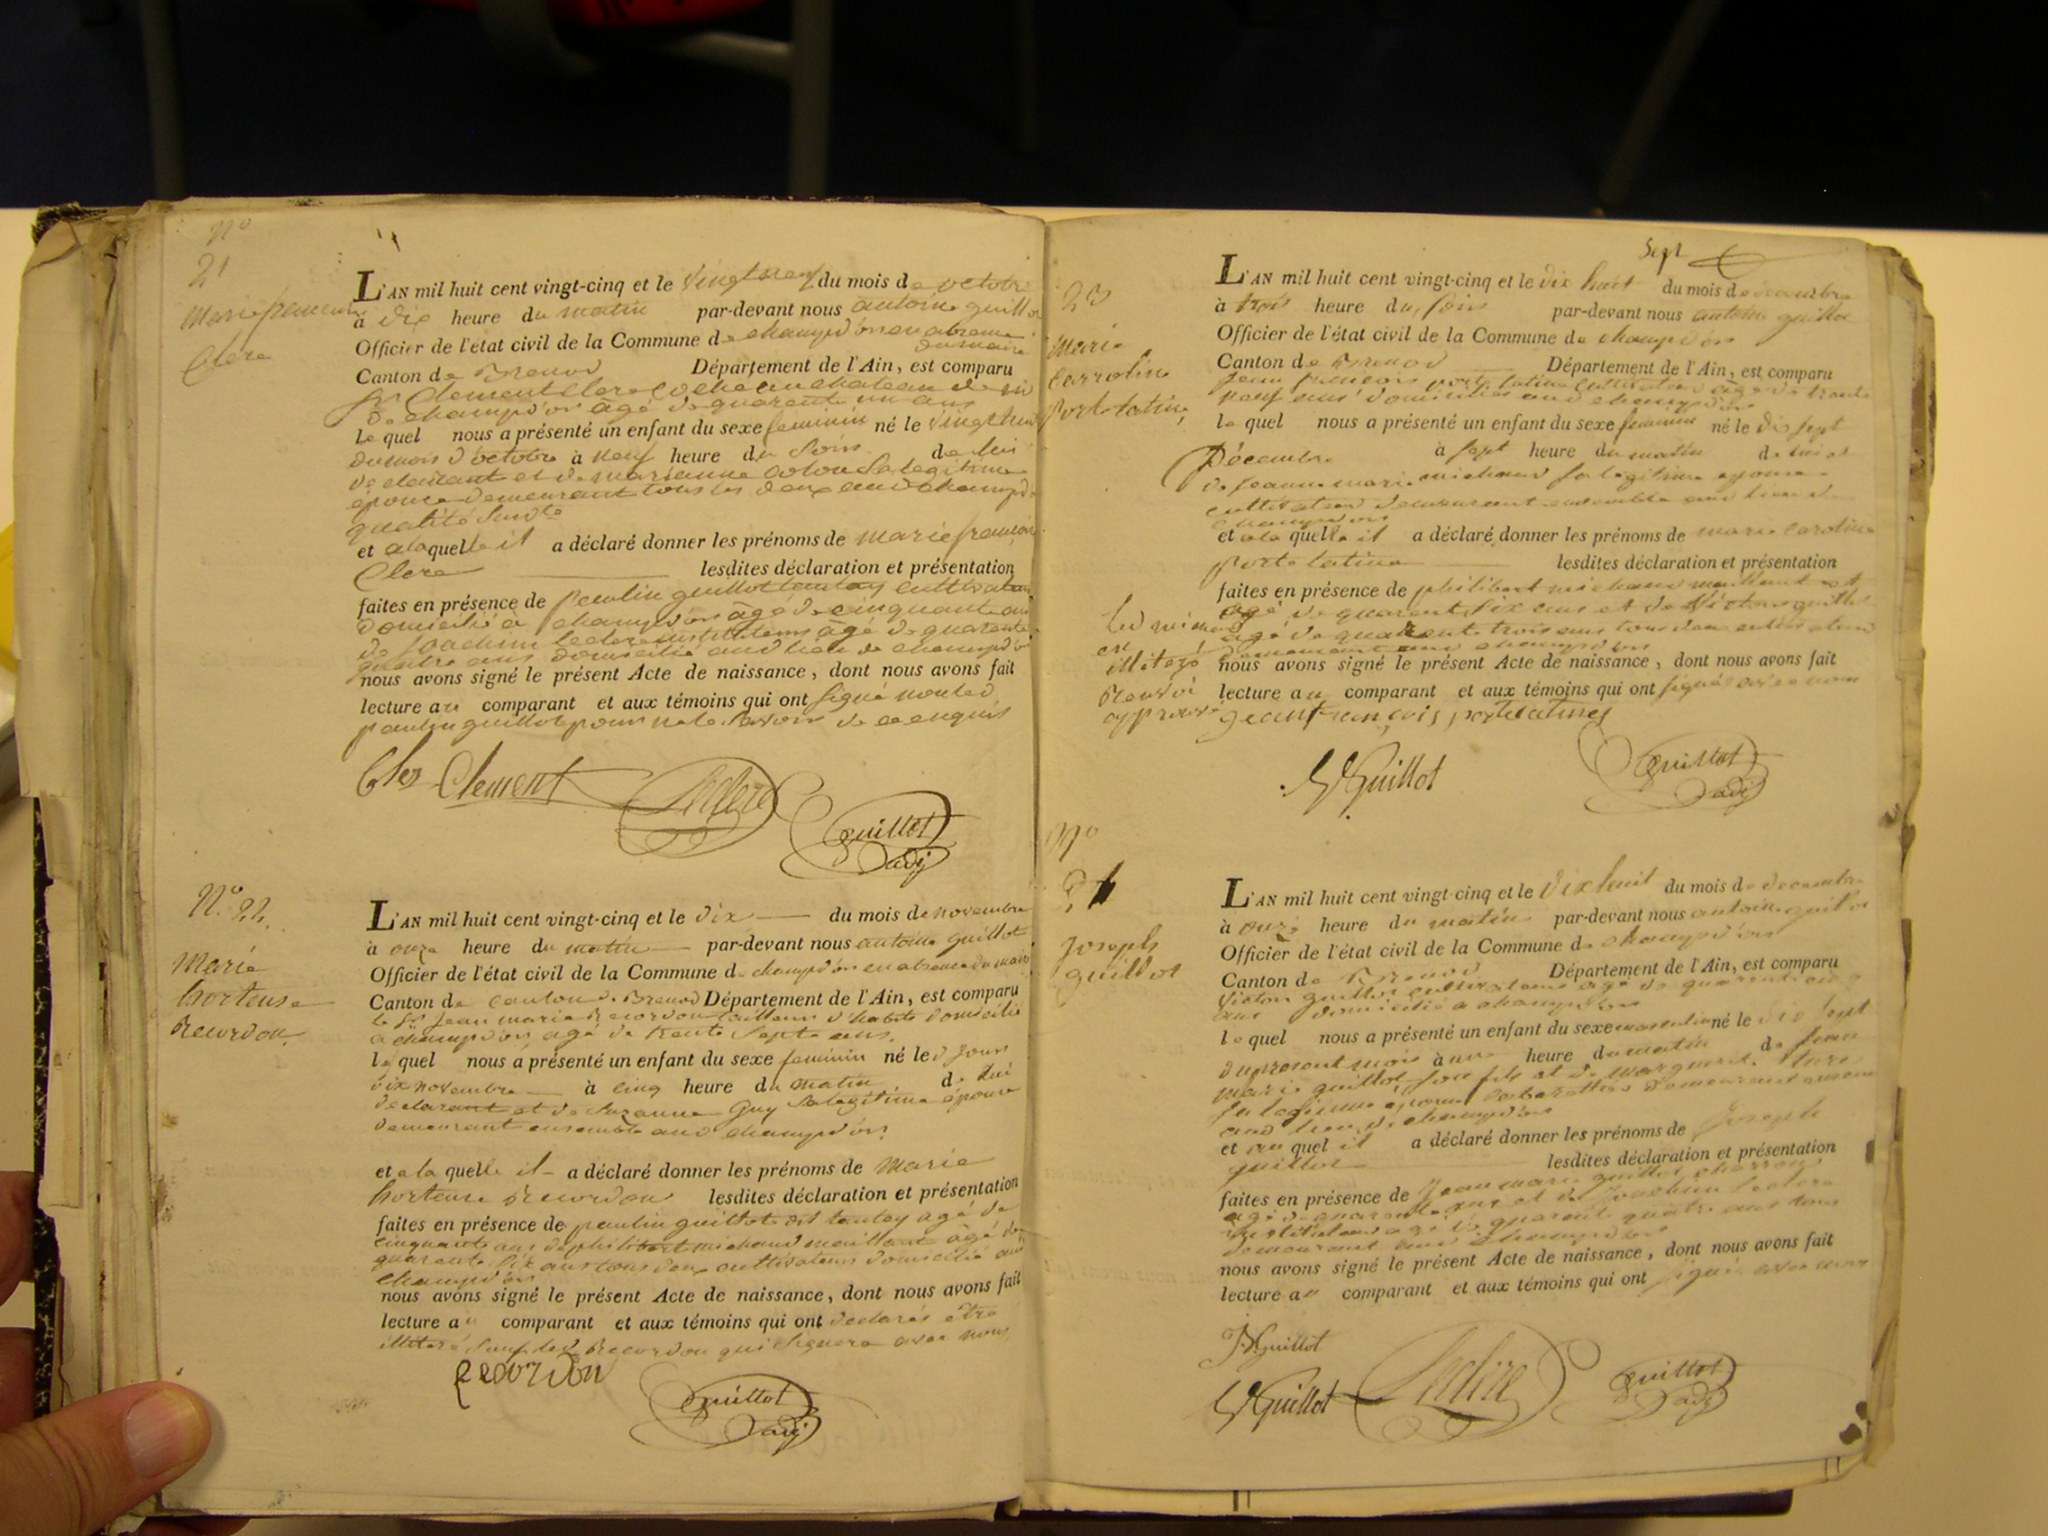 No
21
Marie francoise
Clere
L'AN mil huit cent vingt-cinq et le vingt neuf du mois de octobre
à dix heure du matin par-devant nous antoine guillot
Officier de l'état civil de la Commune de champdor en absence
du maire
Canton de Brenod Département de l'Ain, est comparu
Sr Clement Clere au chateau de
De champdor âgé de quarente un ans
Le quel nous a présenté un enfant du sexe feminin né le vingt huit
du mois d'octobre à neuf heure du Soir de lui
declarant et de marianne Sa legitime
épouse demeurant tous les deux audit champdor
qualité Susdte
et a laquelle il a déclaré donner les prénoms de marie francoise
Clere lesdites déclaration et présentation
faites en présence de paulin guillot tentoy cultivateur
domicilié a champdor âgé de cinquante ans
de Joachim leclere instituteur âgé de quarente
quatre ans domicilié audit lieu de champdor
nous avons signé le présent Acte de naissance, dont nous avons fait
lecture au comparant et aux témoins qui ont signé non led
paulin guillot pour ne le Savoir de ce enquis
Cler Clement Leclere guillot
adj
No 22.
Marie
hortense
Recordon.
L'AN mil huit cent vingt-cinq et le dix du mois de novembre
à onze heure du matin par-devant nous antoine guillot
Officier de l'état civil de la Commune de champdor en absence du maire
Canton de canton de Brenod Département de l'Ain, est comparu
le Sr Jean marie Recordon tailleur d'habits domicilié
a champdor agé de trente Sept ans.
le quel nous a présenté un enfant du sexe feminin né le d jour
dix novembre à cinq heure du matin de lui
declarant et de Suzanne Guy Sa legitime épouse
demeurant ensemble aud champdor
et a la quelle il a déclaré donner les prénoms de Marie
hortense Recordon lesdites déclaration et présentation
faites en présence de paulin guillot dit tentoy agé de
cinquante ans de philibert michaud maillant âgé de
quarente Six ans tous deux cultivateurs domicilié aud
champdor
nous avons signé le présent Acte de naissance, dont nous avons fait
lecture au comparant et aux témoins qui ont declarés être
illiteré Sauf led Recordon qui Signera avec nous
Recordon
guillot
adj
Sept
23
Marie
Carroline
Portelatine
L'AN mil huit cent vingt-cinq et le dix huit du mois de decembre
à trois heure du soir par-devant nous antoine guillot
Officier de l'état civil de la Commune de champdor
Canton de Brenod Département de l'Ain, est comparu
Jean francois porte latine cultivateur âgé de trente
neuf ans domicilié aud champdor
le quel nous a présenté un enfant du sexe feminin né le dix sept
Décembre à sept heure du matin de lui et
de Jeanne marie michaud sa legitime epouse
cultivateur demeurant ensemble aud lieu de
champdor
et a la quelle il a déclaré donner les prénoms de marie caroline
porte latine lesdites déclaration et présentation
faites en présence de philibert michaud maillant
agé de quarente Six ans et de Victor guillot
agé de quarente trois ans tous deux
demeurant aud champdor
nous avons signé le présent Acte de naissance, dont nous avons fait
lecture au comparant et aux témoins qui ont signé avec nous
illiteré
Renvoi
approuvé
Jean francois portelatines
V Guillot
guillot
adj
No
24
Joseph
guillot
L'AN mil huit cent vingt-cinq et le dix huit du mois de decembre
à onze heure du matin par-devant nous antoine guillot
Officier de l'état civil de la Commune de champdor
Canton de Brenod Département de l'Ain, est comparu
Victor guillot cultivateur agé de quarente
ans domicilié a champdor
le quel nous a présenté un enfant du sexe masculin né le dix Sept
du present mois à une heure du matin de Jean
marie guillot Son fils et de Marguerite
Sa legitime epouse demeurant
aud lieu de champdor
et au quel il a déclaré donner les prénoms de Joseph
guillot lesdites déclaration et présentation
faites en présence de Jean marie guillot charron
agé de quarente ans et de Joachim leclere
instituteur agé de quarente quatre ans tous
demeurant aud champdor
nous avons signé le présent Acte de naissance, dont nous avons fait
lecture au comparant et aux témoins qui ont signé avec nous
J.M guillot
V Guillot Leclere guillot
adj